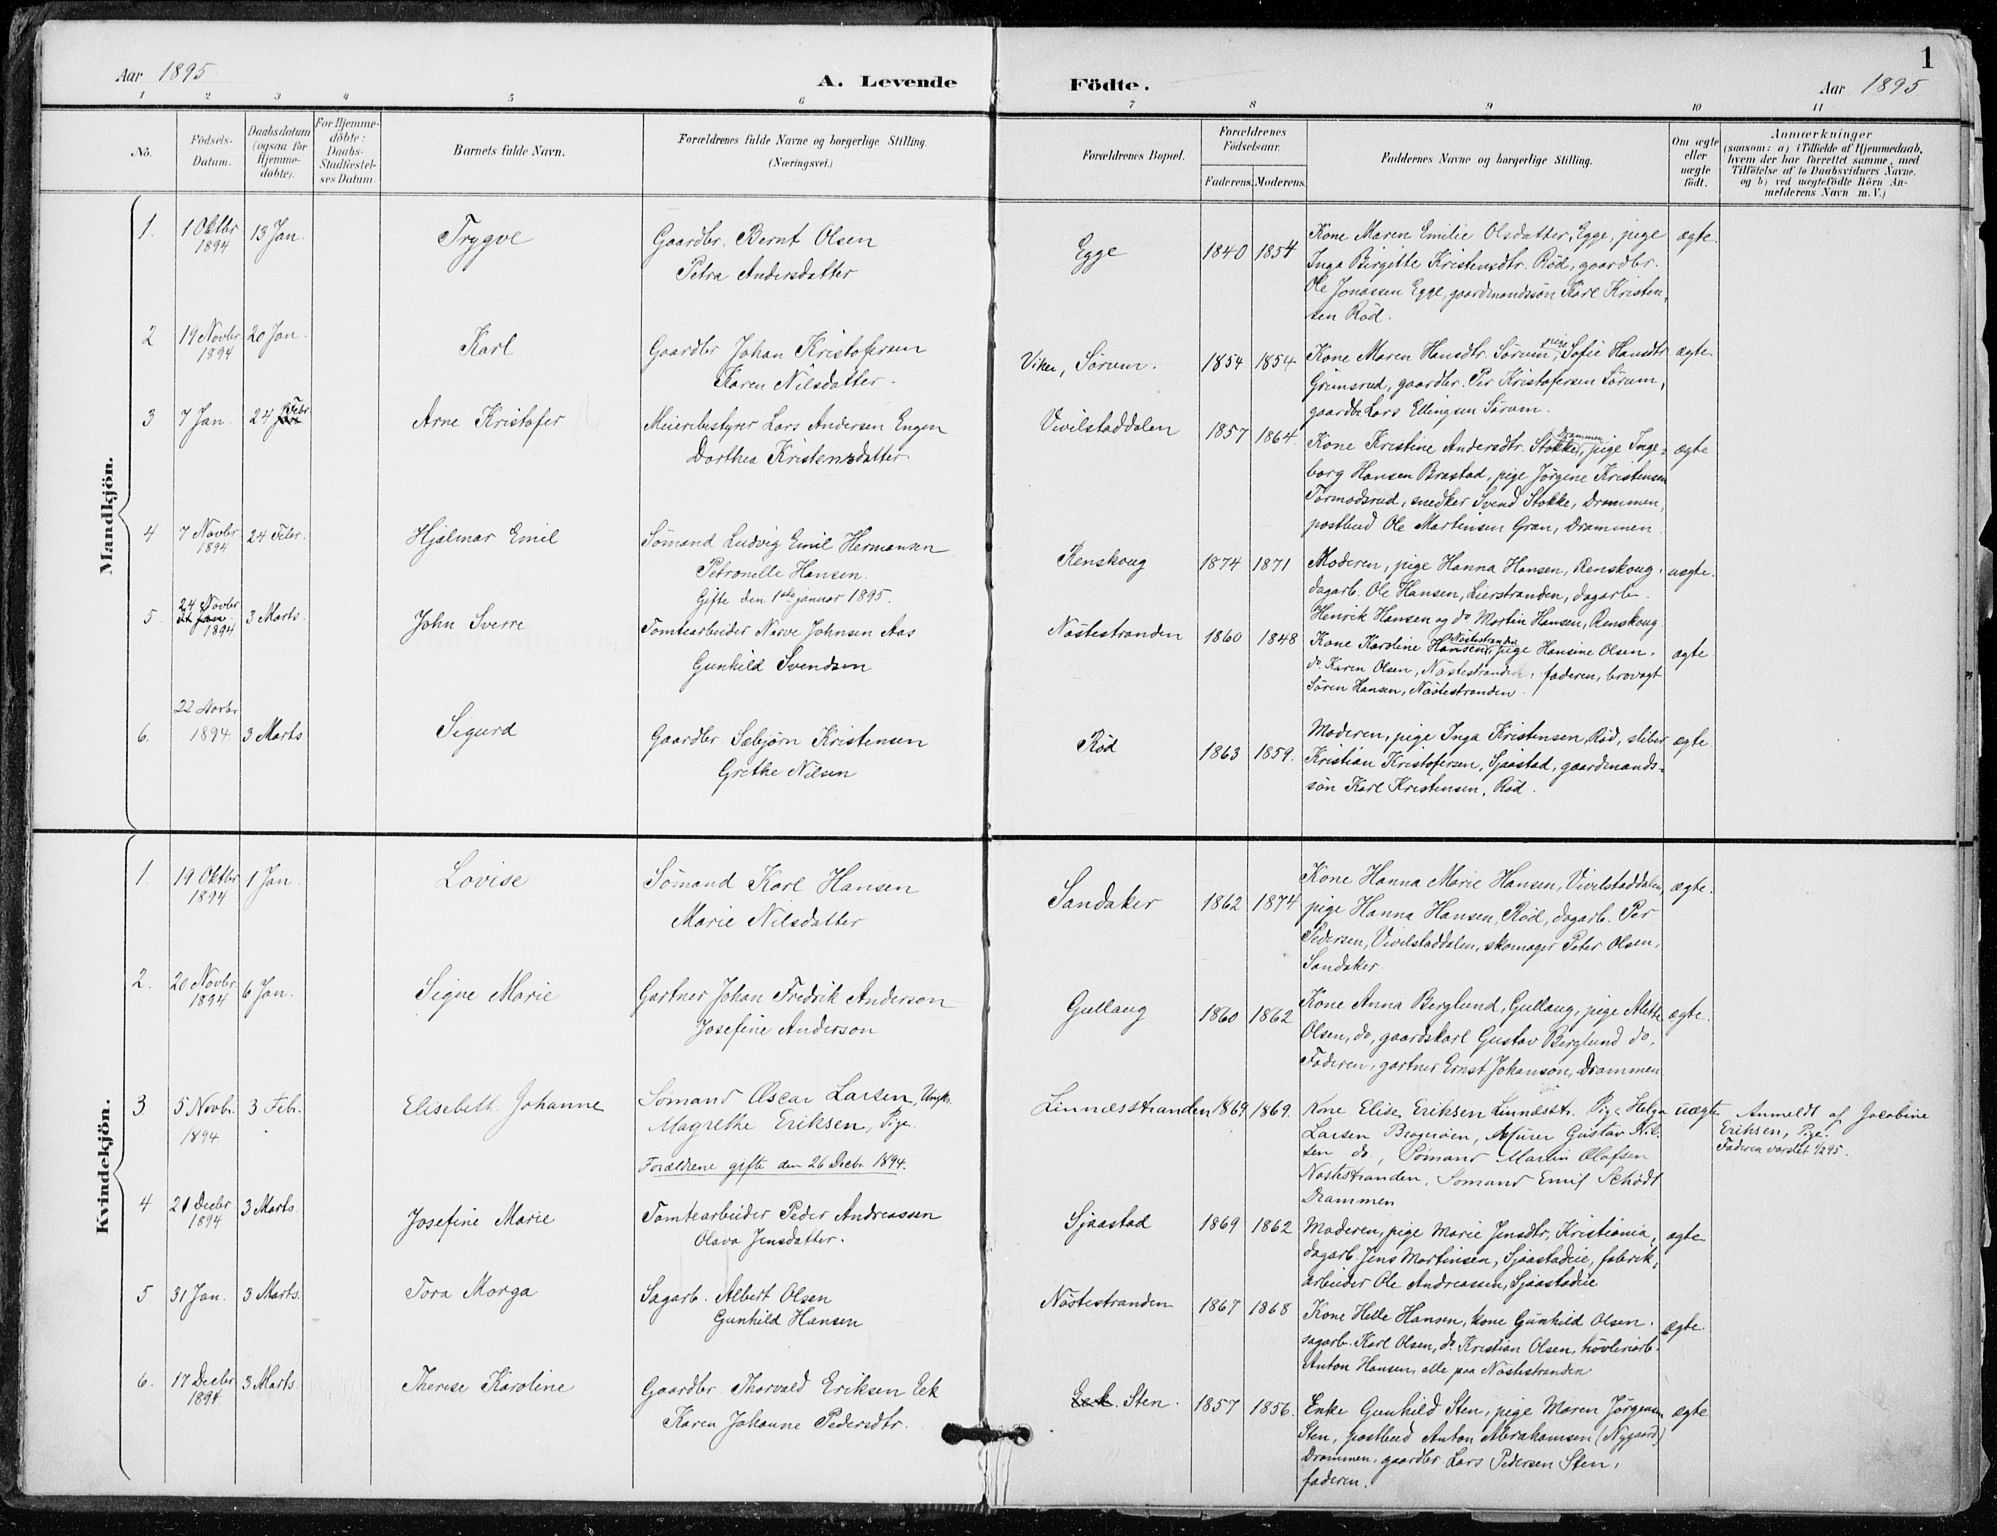 1
Aar 1895
A. Levende Födte.
Aar 1895
1 2 3 4 5 6 7 8 9 10 11
No.
Födsels-Datum.
Daabsdatum (ogsaa for Hjemme-döbte).
For Hjemme-döbte: Daabs-Stadfæstel-ses Datum.
Barnets fulde Navn.
Forældrenes fulde Navne og borgerlige Stilling. (Næringsvei.)
Forældrenes Bopæl.
Forældrenes Födselsaar.
Faderens. Moderens.
Faddernes Navne og borgerlige Stilling.
Om ægte eller uægte födt.
Anmærkninger
(saasom: a) i Tilfælde af Hjemmedaab,
hvem der har forrettet samme, med
Tilföielse af to Daabsvidners Navne.
og b) ved uægtefödte Börn An-
melderens Navn m. V.)
Mandkjön.
1. 1 Oktbr 1894 13 Jan. Trygve
Gaardbr. Bernt Olsen
Petra Andersdatter
Egge 1840 1854
Kone Maren Emilie Olsdatter, Egge, pige
Inga Birgitte Kristensdtr. Röd, gaardbr.
Ole Jonassen Egge, gaardmandssön Karl Kristen-
sen Röd.
ægte.
2 19 Novbr 1894 20 Jan. Karl
Gaardbr Johan Kristofersen
Karen Nilsdatter.
Viker, Sörum. 1854 1854.
Kone Maren Hansdtr. Sörum, pige Sofie Hansdtr
Grimsrud, gaardbr. Per Kristofersen Sörum,
gaardbr Lars Ellingsen Sörum.
ægte
3 7 Jan. 24 Febr. Arne Kristofer
Meieribestyrer Lars Andersen Engen
Dorthea Kristensdatter.
Vivilstaddalen 1857 1864
Kone Kristine Andersdtr. Stokke, Drammen, pige Inge-
borg Hansen Brastad, pige Jörgine Kristensen
Tormodsrud, snedker Svend Stokke, Drammen,
postbud Ole Martinsen Gran, Drammen.
ægte
4 7 Novbr 1894 24 Febr. Hjalmar Emil
Sömand Ludvig Emil Hermansen
Petronelle Hansen.
Gifte den 1ste januar 1895.
Renskoug 1874 1871
Moderen, pige Hanna Hansen, Renskoug.
dagarb. Ole Hansen, Lierstranden, dagarb.
Henrik Hansen og do Martin Hansen, Renskoug
uægte.
5. 24 Novbr 1894 3 Marts John Sverre
Tomtearbeider Narve Johnsen Aas
Gunhild Svendsen
Nöstestranden 1860 1848
Kone Karoline Hansen, Nöstestranden, pige Hansine Olsen.
do Karen Olsen, Nöstestranden. faderen, brovagt
Sören Hansen, Nöstestranden.
ægte
6. 22 Novbr 1894. 3 Marts Sigurd
Gaardbr. Sebjörn Kristensen
Grethe Nilsen
Röd 1863 1859.
Moderen, pige Inga Kristensen, Röd, sliber
Kristian Kristofersen, Sjaastad, gaardmands-
sön Karl Kristensen, Röd.
ægte
Kvindekjön.
1. 19 Oktbr 1894 1 Jan. Lovise
Sömand Karl Hansen
Marie Nilsdatter
Sandaker 1862 1874
Kone Hanna Marie Hansen, Vivilstaddalen,
pige Hanna Hansen, Röd, dagarb. Per
Pedersen, Vivilstaddalen, skomager Peter Olsen,
Sandaker.
ægte.
2. 20 Novbr 1894 6 Jan. Signe Marie
Gartner Johan Fredrik Anderson
Josefine Anderson
Gullaug 1860 1862
Kone Anna Berglund, Gullaug, pige Alette
Olsen, do, gaardskarl Gustav Berglund do,
Faderen, gartner Ernst Johanson, Drammen
ægte.
3 5 Novbr. 1894 3 Feb. Elisebeth Johanne
Sömand Oscar Larsen, Ungk.
Magrethe Eriksen, Pige
Forældrene gifte den 26 Decbr. 1894.
Linnesstranden 1869 1869.
Kone Elise Eriksen Linnesstr. Pige Helga
Larsen Bragerøen, Murer Gustav Nil-
sen do, Sömand Martin Olafsen
Nöstestranden, Sömand Emil Schödt
Drammen
uægte
Anmeldt af Jacobine
Eriksen, Pige.
Faderen varslet 4/2 95.
4 21 Decbr 1894 3 Marts. Josefine Marie
Tomtearbeider Peder Andreassen
Olava Jensdatter.
Sjaastad 1869 1862
Moderen, pige Marie Jensdtr, Kristiania,
dagarb. Jens Martinsen, Sjaastadeie, fabrik-
arbeider Ole Andreassen, Sjaastadeie
ægte
5 31 Jan. 3 Marts. Tora Marga
Sagarb. Albert Olsen
Gunhild Hansen
Nöstestranden 1867 1868
Kone Helle Hansen, kone Gunhild Olsen.
sagarb. Karl Olsen, do Kristian Olsen, hövleriarb.
Anton Hansen, alle paa Nöstestranden
ægte.
6. 17 Decbr 1894. 3 Marts. Therese Karoline
Gaardbr. Thorvald Eriksen Eek
Karen Johanne Pedersdtr.
Eek. Sten. 1857 1856.
Enke Gunhild Sten, pige Maren Jörgensen
Sten, postbud Anton Abrahamsen (Nygaard)
Drammen, gaardbr. Lars Pedersen Sten,
faderen.
ægte